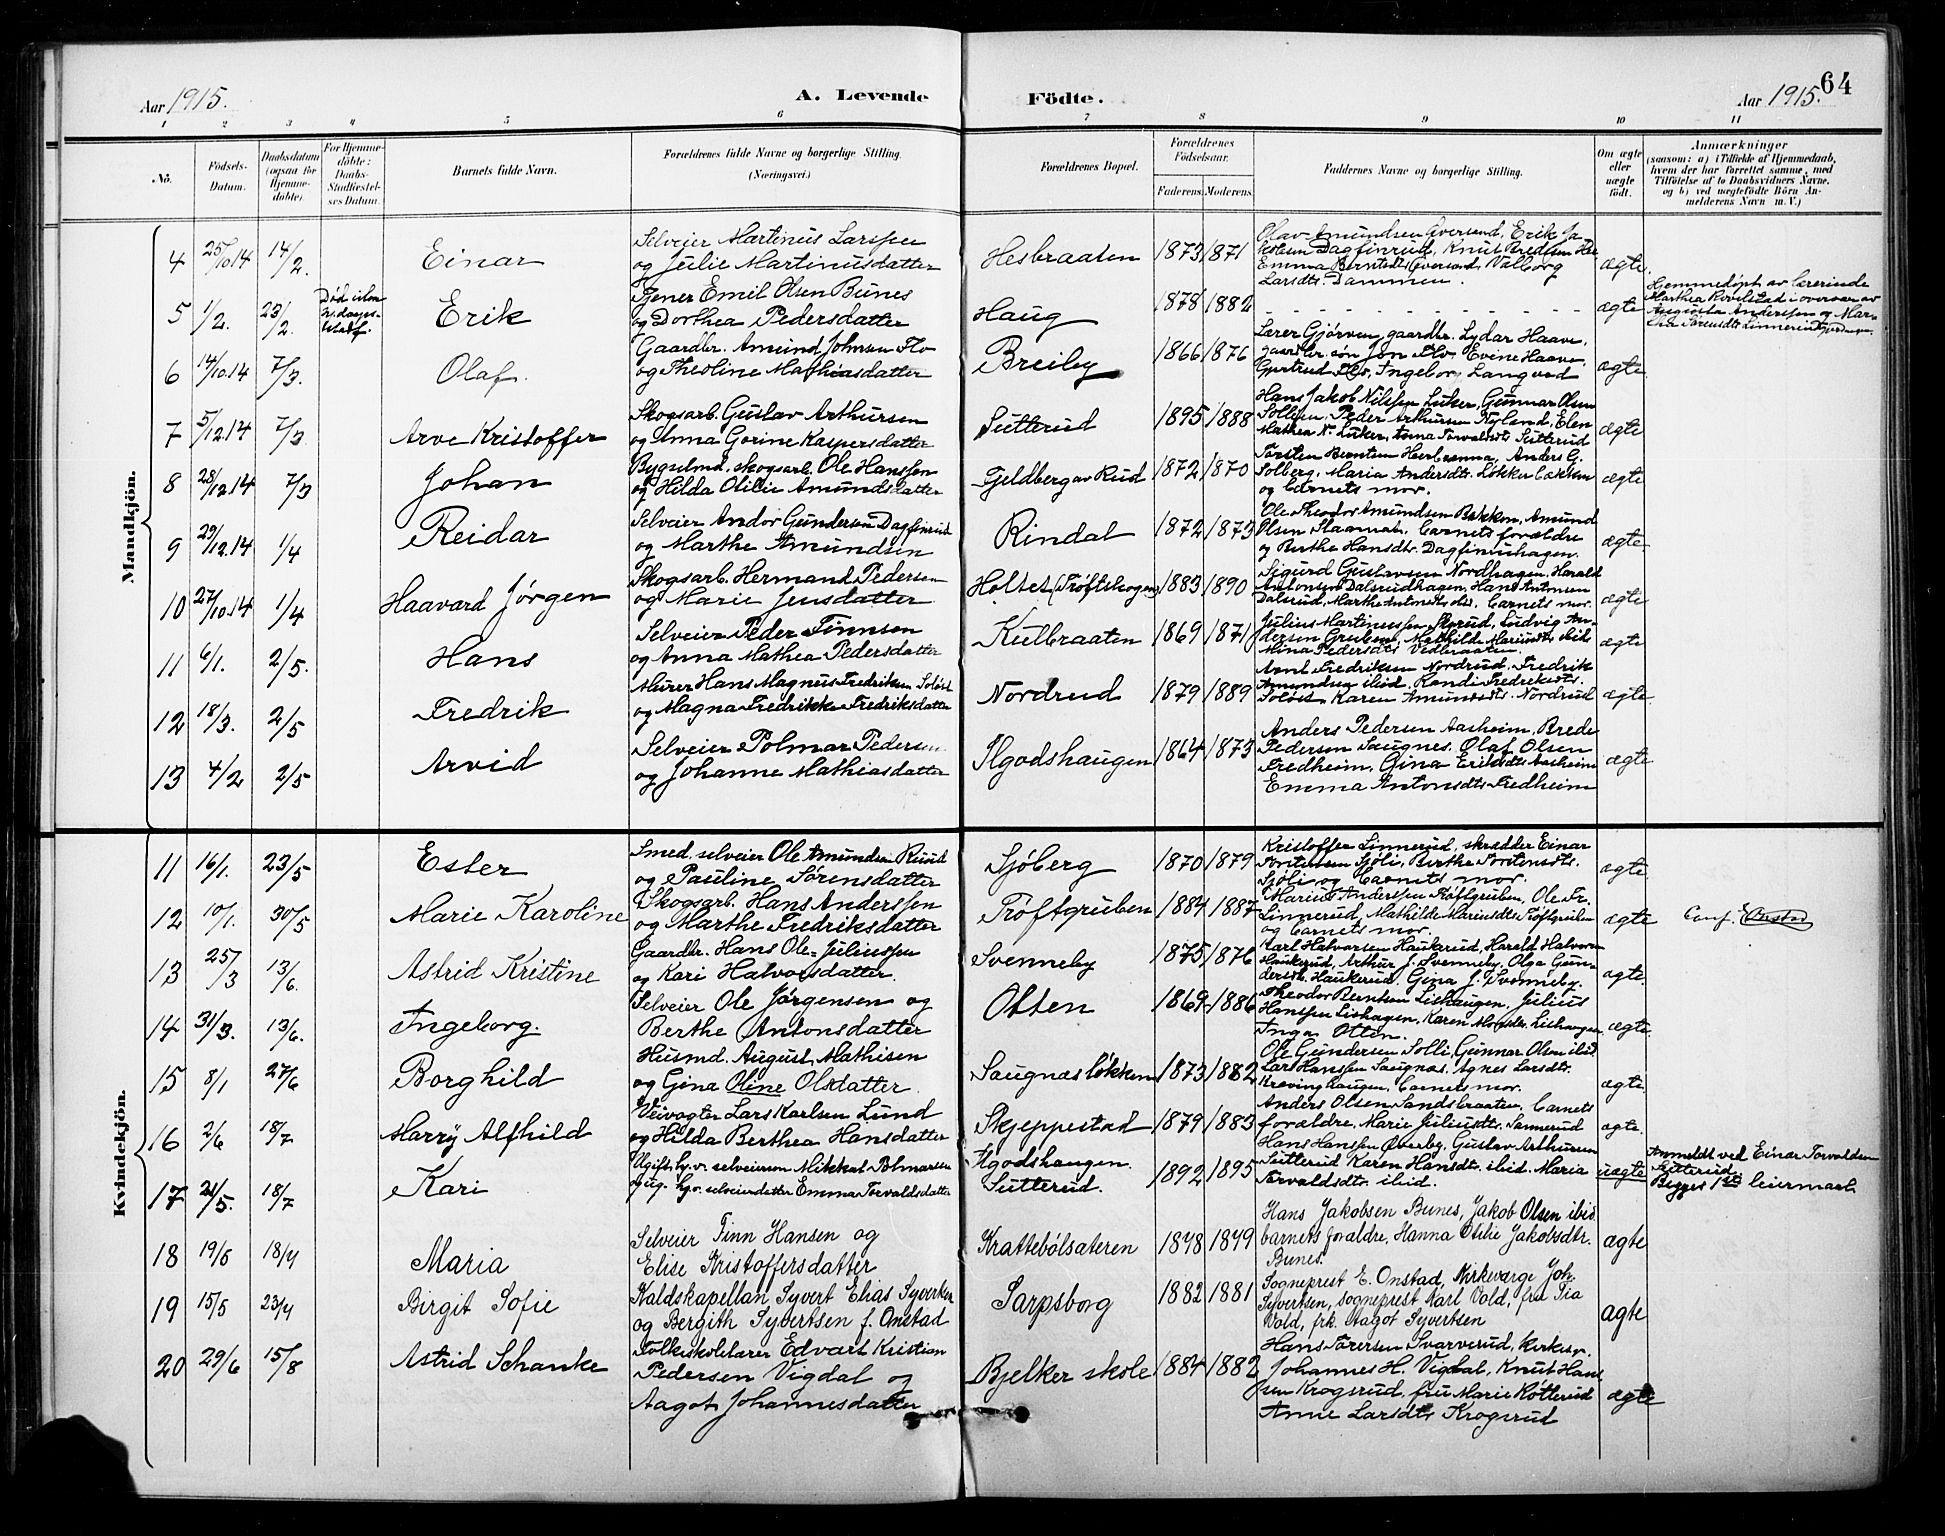 Aar 1915.
A. Levende
Födte.
Aar 1915.
64
1 2 3 4 5 6 7 8 9 10 11
No.
Födsels-
Datum.
Daabsdatum
(ogsaa for
Hjemme-
döbte).
For Hjemme-
döbte:
Daabs-
Stadfæstel-
ses Datum.
Barnets fulde Navn.
Forældrenes fulde Navne og borgerlige Stilling.
(Næringsvei.)
Forældrenes Bopæl.
Forældrenes
Födselsaar.
Faderens. Moderens.
Faddernes Navne og borgerlige Stilling.
Om ægte
eller
uægte
födt.
Anmærkninger
(saasom: a) i Tilfælde af Hjemmedaab,
hvem der har forrettet samme, med
Tilföielse af to Daabsvidners Navne,
og b) ved uægtefödte Börn An-
melderens Navn m. V.)
Mandkjön.
4 25/10 14 14/2. Einar
Selveier Martinus Larssen
og Julie Martinusdatter
Hesbraaten 1873 1871
Olav Amundsen Gversand, Erik
Dagfinrud, Knut Bredesen
Emma Berntsdt. Gversand, Valborg
Larsdt. Dammen.
ægte.
5 1/2. 23/2. Erik
Tjener Emil Olsen Bunes
og Dorthea Pedersdatter
Haug 1878 1882
ægte
Hjemmedøpt av lærerinde
Marthea Rovelstad i overvær av
Augusta Anderssen og Mar-
6 14/10 14 7/3. Olaf.
Gaardbr. Amund Johnsen Flo
og Theoline Mathiasdatter
Breiby 1866 1876
Lærer Gjørven, gaardbr. Lydar Haave,
gaardbr. søn Jon Flo, Evine Haave
Gjertrud Flo, Ingeborg Langerud
ægte.
7 5/12 14 7/3 Arve Kristoffer
Skogsarb. Gustav Arthursen
og Anna Gorine Kaspersdatter
Sutterud 1895 1888
Hans Jakob Nilssen Luker, Gunnar Olsen
Sollien, Peder Arthursen Nyland, Elen
Mathea N. Luker, Anna Torvaldsdt. Sutterud
ægte
8 28/12 14 7/3 Johan
Bygselmd. skogsarb. Ole Hanssen
og Hilda Otilie Amundsdatter
Fjeldberg av Rud 1872 1870
Torsten Berntsen, Anders G.
Solberg, Maria Andersdt. Løkken
og barnets mor.
ægte
9 29/12 14 1/4 Reidar
Selveier Andor Gundersen Dagfinrud
og Marthe Amundsen
Rindal 1872 1873
Ole Theodor Amundsen Bakken, Amund
Olsen, barnets forældre
og Berthe Hansdt. Dagfinruhagen.
ægte
10 27/10 14 1/4 Haavard Jørgen
Skogsarb. Hermand Pedersen
og Marie Jensdatter
Holtet (Trøftskogen) 1883 1890
Sigurd Gustavsen Nordhagen, Harald
Antonsen Dalsrudhagen, Hans Antonsen
Dalsrud, Marthe, barnets mor.
ægte
11 6/1. 2/5. Hans
Selveier Peder Finnsen
og Anna Mathea Pedersdatter
Kulbraaten 1869 1871
Julius Martinussen, Ludvig An-
dersen Gruben, Mathilde Mariusdt. ibid
Mina Pedersdt. Vedbraaten.
ægte
12 18/3. 2/5 Fredrik
Murer Hans Magnus Fredriksen
og Magna Fredrikke Fredriksdatter
Nordrud 1879 1889
Arnt Fredriksen Nordrud, Fredrik
Amundsen ibid, Randi Fredriksdt.
Karen Amundsdt. Nordrud
ægte
13 4/2 2/5 Arvid
Selveier Polmar Pedersen
og Johanne Mathiasdatter
Ilgodshaugen 1864 1873
Anders Pedersen Aasheim, Brede
Pedersen Saugnes. Olaf Olsen
Fredheim, Gina Eriksdt. Aasheim
Emma Antonsdt. Fredheim
ægte
Kvindekjön.
11 16/1. 23/5 Ester
Smed, selveier Ole Amundsen Ruud
og Pauline Sørensdatter
Sjøberg 1870 1879
Kristoffer Linnerud, skrædder Einar
Torstensen Sjøli, Berthe Torstensdt.
Sjøli og barnets mor.
ægte
12 10/1. 30/5 Marie Karoline
Skogsarb. Hans Anderssen
og Marthe Fredriksdatter
Trøftgruben 1884 1887
Marius Anderssen Trøftgruben, Ole Fr.
Linnerud, Mathilde Mariusdt. Trøftgruben
og barnets mor.
ægte
13 25/3 13/6. Astrid Kristine
Gaardbr. Hans Ole Juliussen
og Kari Halvorsdatter.
Svenneby 1875 1876
Karl Halvorsen Haukerud, Harald Halvorsen
Haukerud, Arthur J. Svenneby, Olga Gun-
dersdt. Haukerud, Gina J. Svenneby.
ægte.
14 31/3. 13/6. Ingeborg.
Selveier Ole Jørgensen og
Berthe Antonsdatter
Otten 1869 1886
Theodor Berntsen Lishaugen, Julius
Hanssen Lishagen, Karen Lishaugen,
Inga Otten.
ægte
15 8/1 27/6 Borghild
Husmd. August Mathisen
og Gina Oline Olsdatter.
Saugnæsløkken 1873 1882
Ole Gundersen Solli, Gunnar Olsen ibid.
Lars Hanssen Saugnæs, Agnes Larsdt.
Krevinghaugen, barnets mor.
ægte
16 2/6 18/7 Marry Alfhild
Veivogter Lars Karlsen Lund
og Hilda Berthea Hansdatter
Skjeppestad 1879 1883
Anders Olsen Sandsbraaten, barnets
forældre, Marie Juliusdt. Sannerud
ægte.
17 21/5. 18/7 Kari
Ugift. selveiersøn Mikkal Polmarsen
og ug. selveierdatter Emma Torvaldsdatter
Ilgodshaugen.
Sutterud. 1892 1895
Hans Hanssen Øverby, Gustav Arthursen
Sutterud Karen Hansdt. ibid. Maria
Torvaldsdt. ibid.
uægte
Anmeldt ved Einar Torvaldsen
Sutterud.
Begges 1ste leiermaal
18 19/5 18/4 Maria
Selveier Finn Hansen og
Elise Kristoffersdatter
Krattebølsæteren 1848 1849
Hans Jakobsen Bunes, Jakob Olsen ibid.
barnets forældre, Hanna Otilie Jakobsdtr.
Bunes.
ægte
19 15/5 23/4 Birgit Sofie
Kaldskapellan Syvert Elias Syvertsen
og Bergith Syvertsen f. Onstad
Sarpsborg 1882 1881
Sogneprest E. Onstad, Kirkeværge Joh.
Syvertsen, sogneprest Karl Vold, fru Pia
Vold, frk. Aagot Syvertsen
ægte
20 29/6 15/8 Astrid Schanke
Folkeskolelærer Edvart Kristian
Pedersen Vigdal og
Aagot Johannesdatter
Bjelker skole 1884 1882
Hans Torersen Svarverud, kirkesn.
Johannes H. Vigdal, Knut Hans
sen Krogsrud, fru Marie Røtterud
Anne Larsdt. Krogsrud
ægte